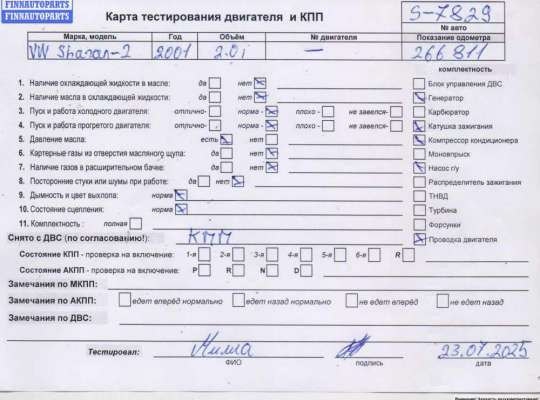 FINNAUTOPARTS
FINNAUTOPARTS
Карта тестирования двигателя и КПП
S-7829
№ авто
Марка, модель Год Объём № двигателя Показание одометра
VW Sharan-2 2001 2.0i — 266 811
комплектность
1. Наличие охлаждающей жидкости в масле: да нет
Блок управления ДВС
2. Наличие масла в охлаждающей жидкости: да нет
Генератор
3. Пуск и работа холодного двигателя: отлично- норма - плохо - не завелся-
Карбюратор
4. Пуск и работа прогретого двигателя: отлично- норма - плохо - не завелся-
Катушка зажигания
5. Давление масла: есть нет
Компрессор кондиционера
6. Картерные газы из отверстия масляного щупа: да нет
Моновпрыск
7. Наличие газов в расширительном бачке: да нет
Насос г/у
8. Посторонние стуки или шумы при работе: да нет
Распределитель зажигания
9. Дымность и цвет выхлопа: норма
ТНВД
10. Состояние сцепления: норма
Турбина
11. Комплектность : полная
Форсунки
Снято с ДВС (по согласованию!): КПП
Проводка двигателя
Состояние КПП - проверка на включение: 1-я 2-я 3-я 4-я 5-я 6-я R
Состояние АКПП - проверка на включение: P R N D
Замечания по МКПП:
Замечания по АКПП: едет вперёд нормально едет назад нормально не едет вперёд не едет назад
Замечания по ДВС:
Тестировал: 23.07.2025
ФИО подпись дата